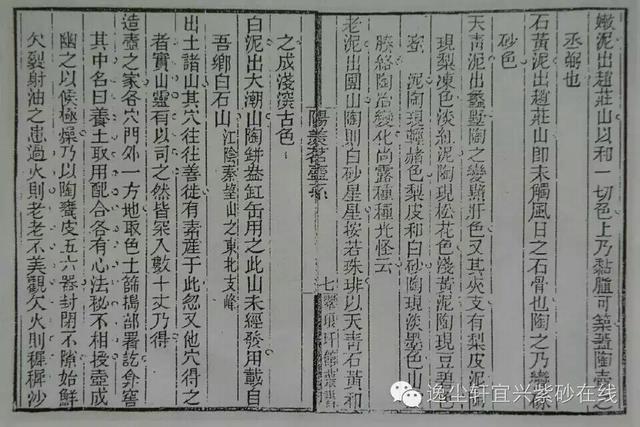 嫩泥出趙莊山以和一切色上乃黏可築盖陶壺之
丞弼也
石黃泥出趙莊山即未觸風日之石骨也陶之乃變硃
砂色
天青泥出蠡墅陶之變黯肝色又其夾支有梨皮泥
現梨凍色淡紅泥陶現松花色淺黃泥陶現豆碧
蜜泥陶現輕赭色梨皮和白砂陶現淡墨色山
腠絡陶冶變化尚露種種光怪云
老泥出團山陶則白砂星星按若珠琲以天青石黃和
陽羨茗壺系
七翠琅玕館叢書
之成淺深古色
白泥出大潮山陶缾盎缸缶用之此山未經發用載自
吾鄉白石山江陰秦望山之東北支峰
出土諸山其穴往往善徙有素產于此忽又他穴得之
者實山靈有以司之然皆深入數十丈乃得
造壺之家各穴門外一方地取色土篩搗部署訖弇窖
其中名曰養土取用配合各有心法秘不相授壺成
幽之以候極燥乃以陶甕皮五六器封閉不隙始鮮
欠裂射油之患過火則老老不美觀欠火則穉穉沙
逸尘轩宜兴紫砂在线